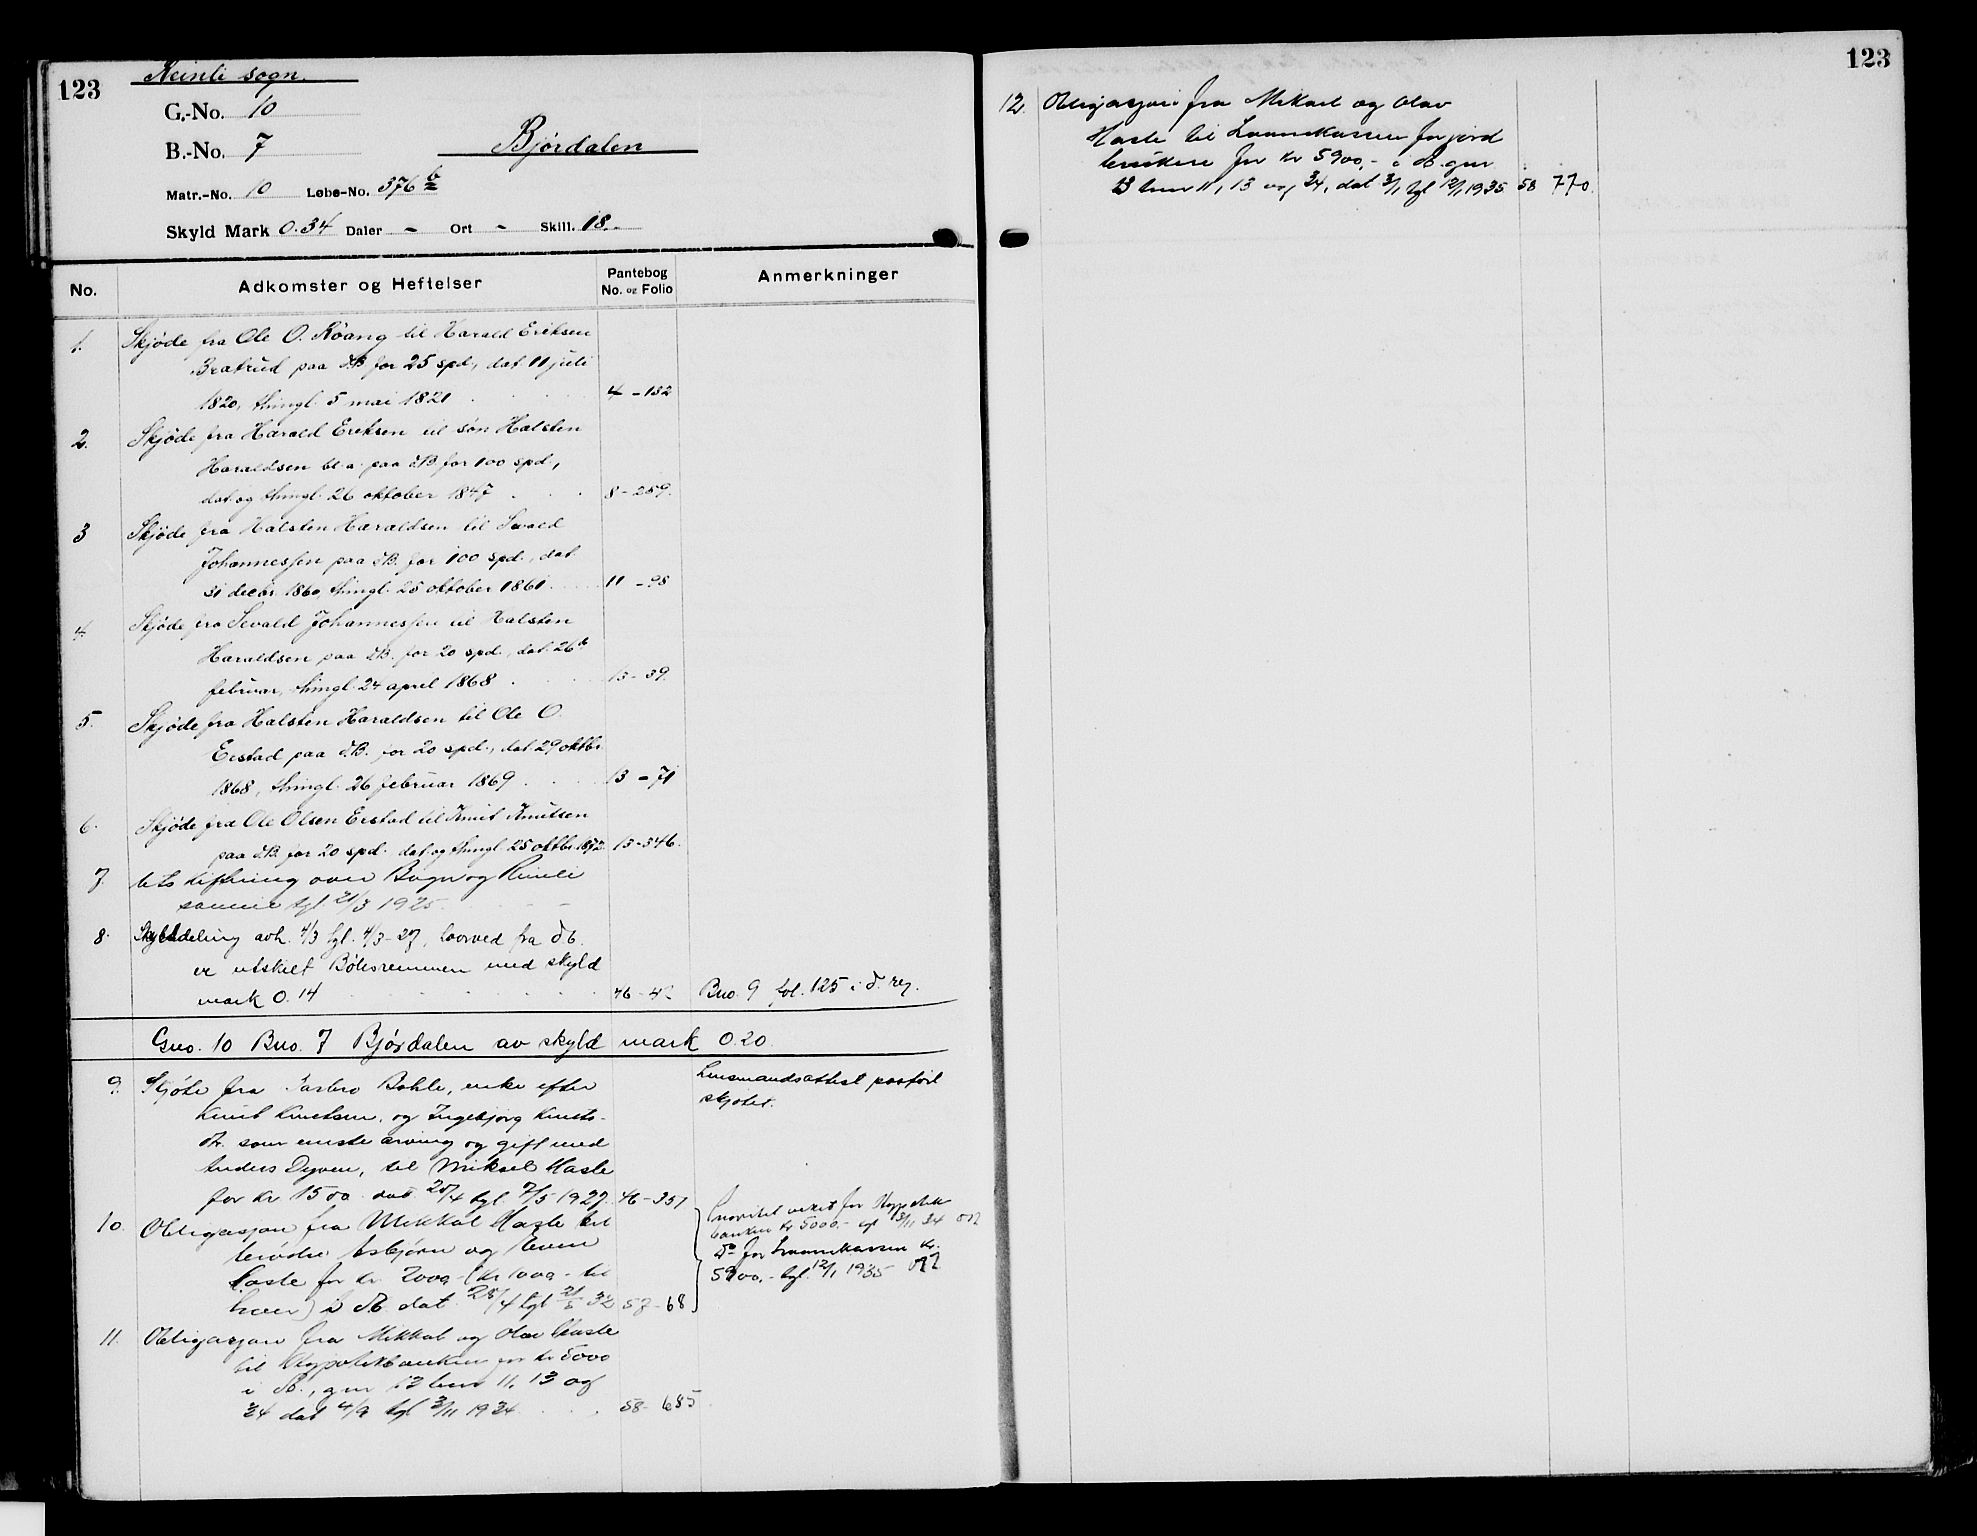 123
Reinli sogn.
G.-No. 10
B.-No. 7
Björdalen
Matr.-No. 10 Løbe-No. 376 b
Skyld Mark 0.34 Daler - Ort - Skill. 18.-
No. Adkomster og Heftelser Pantebog No. og Folio Anmerkninger
1. Skjöde fra Ole O. Röang til Harald Eriksen
Bratrud paa d.B. for 25 spd., dat 11 juli
1820, thingl. 5 mai 1821 4 - 132
2. Skjöde fra Harald Eriksen til sön Halsten
Haraldsen bl.a. paa d.B. for 100 spd.,
dat. og thingl. 26 oktober 1847 8 - 259.
3 Skjöde fra Halsten Haraldsen til Sevald
Johannessen paa d.B. for 100 spd., dat.
31 decbr. 1860, thingl. 25 oktober 1861 11 - 98
4. Skjöde fra Sevald Johannessen til Halsten
Haraldsen paa d.B. for 20 spd., dat. 26de
februar, thingl. 24 april 1868 13 - 39.
5. Skjöde fra Halsten Haraldsen til Ole O.
Erstad paa d.B. for 20 spd., dat 29 oktbr.
1868, thingl. 26 februar 1869 13 - 71
6. Skjöde fra Ole Olsen Erstad til Knut Knutsen
paa d.B. for 20 spd. dat. og thingl. 25 oktbr. 1872. 13 - 346.
7. Utskiftning over Bagn og Reinli
sameie tgl. 21/3 1925
8. Skylddeling avh. 4/3 tgl. 4/3-27, hvorved fra d.b.
er utskilt Böleremmen med skyld
mark 0.14 46 - 42 Bno. 9 fol. 125 i d. reg.
Gno. 10 Bno. 7 Björdalen av skyld mark 0.20.
9. Skjöte fra Böhle, enke efter
Knut Knutsen, og Ingebjörg Knuts-
dtr. som eneste arving og gift med
Anders Dyven, til Mikael Hasle
for kr. 1500 dat 20/4 tgl. 7/5 1927. 46 - 351
Lensmandsattest paafört
skjötet.
10. Obligasjon fra Mikkal Hasle til
brödre Asbjörn og Even
Hasle for kr. 2000 - (kr 1000 - til
hver) i d.b. dat. 28/4 tgl 21/5 32 57 - 68
Prioritet veket for Hypotek
banken kr 5000.- tgl 3/11 34
Do for Laanekassen kr.
5900.- tgl. 12/1 1935
11. Obligasjon fra Mikkal og Olav Hasle
til Hypotekbanken for kr 5000
i d.b., gnr 13 bnr 11, 13 og
34 dat 4/9 tgl 3/11 1934 58 - 685
123
12. Obligasjon fra Mikael og Olav
Hasle til Laanekassen for jord
brukere for kr 5900,- i d.b. gnr
13 bnr 11, 13 og 34, dat 3/1 tgl 12/1 1935 58 770.